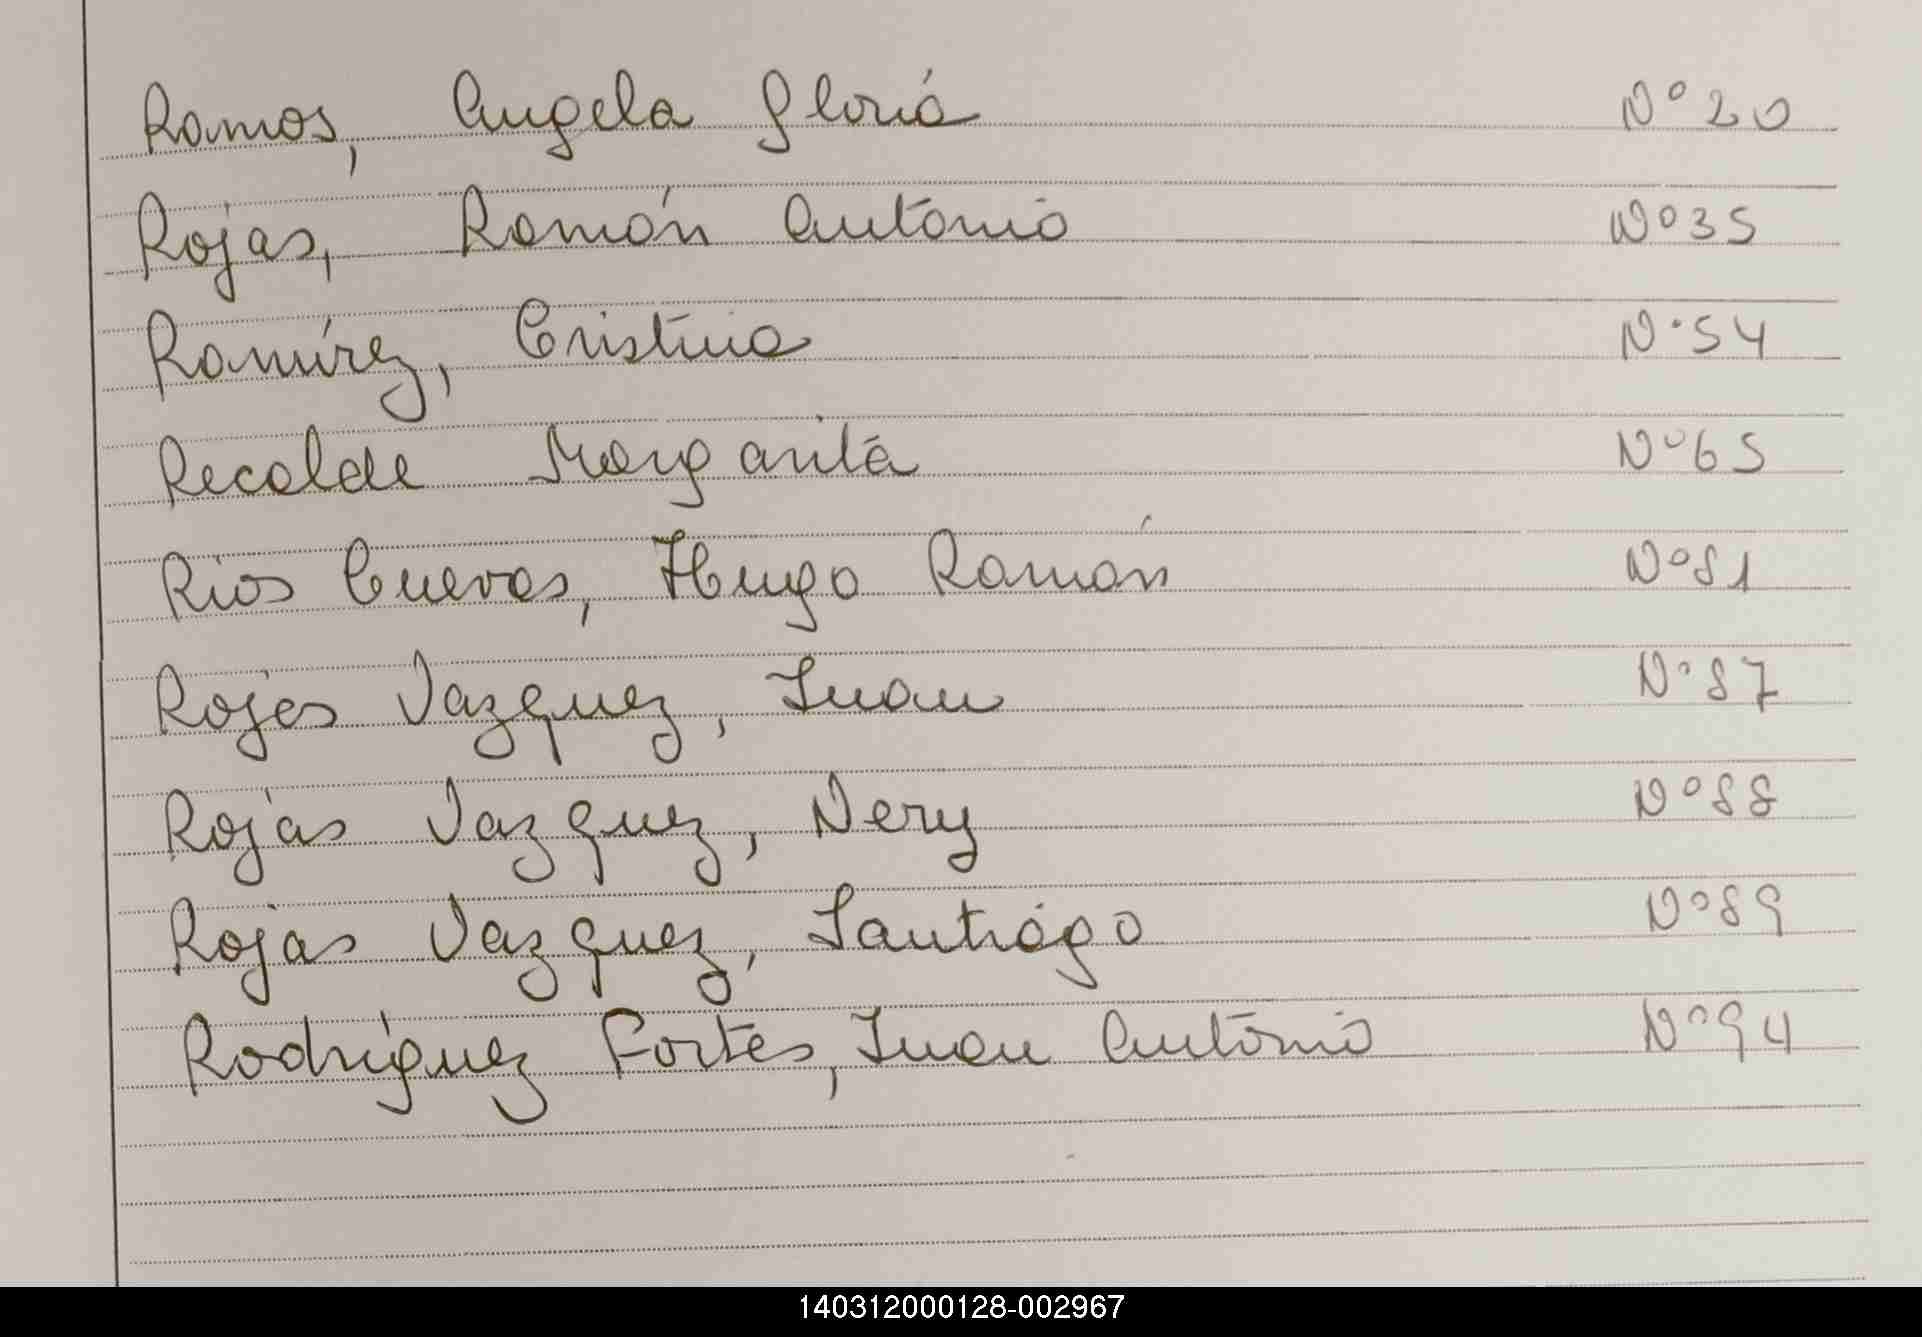 Ramos, Angela Gloria N° 20
Rojas, Ramón Antonio N° 35
Ramírez, Cristina N° 54
Recalde Margarita N° 65
Rios Cuevas, Hugo Ramón N° 81
Rojas Vazquez, Juan N° 87
Rojas Vazquez, Nery N° 88
Rojas Vazquez, Santiago N° 89
Rodríguez Fortes, Juan Antonio N° 94
140312000128-002967